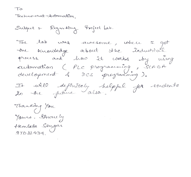 To
Technocrat automation,
Subject :- Regarding Project Lab.
The lab was awesome, where I got
the knowledge about the industrial
process and how it works by using
automation ( PLC programming, SCADA
development & DCS programming).
It will definitely helpful for students
in the future also.
Thanking You
Yours Sincerely